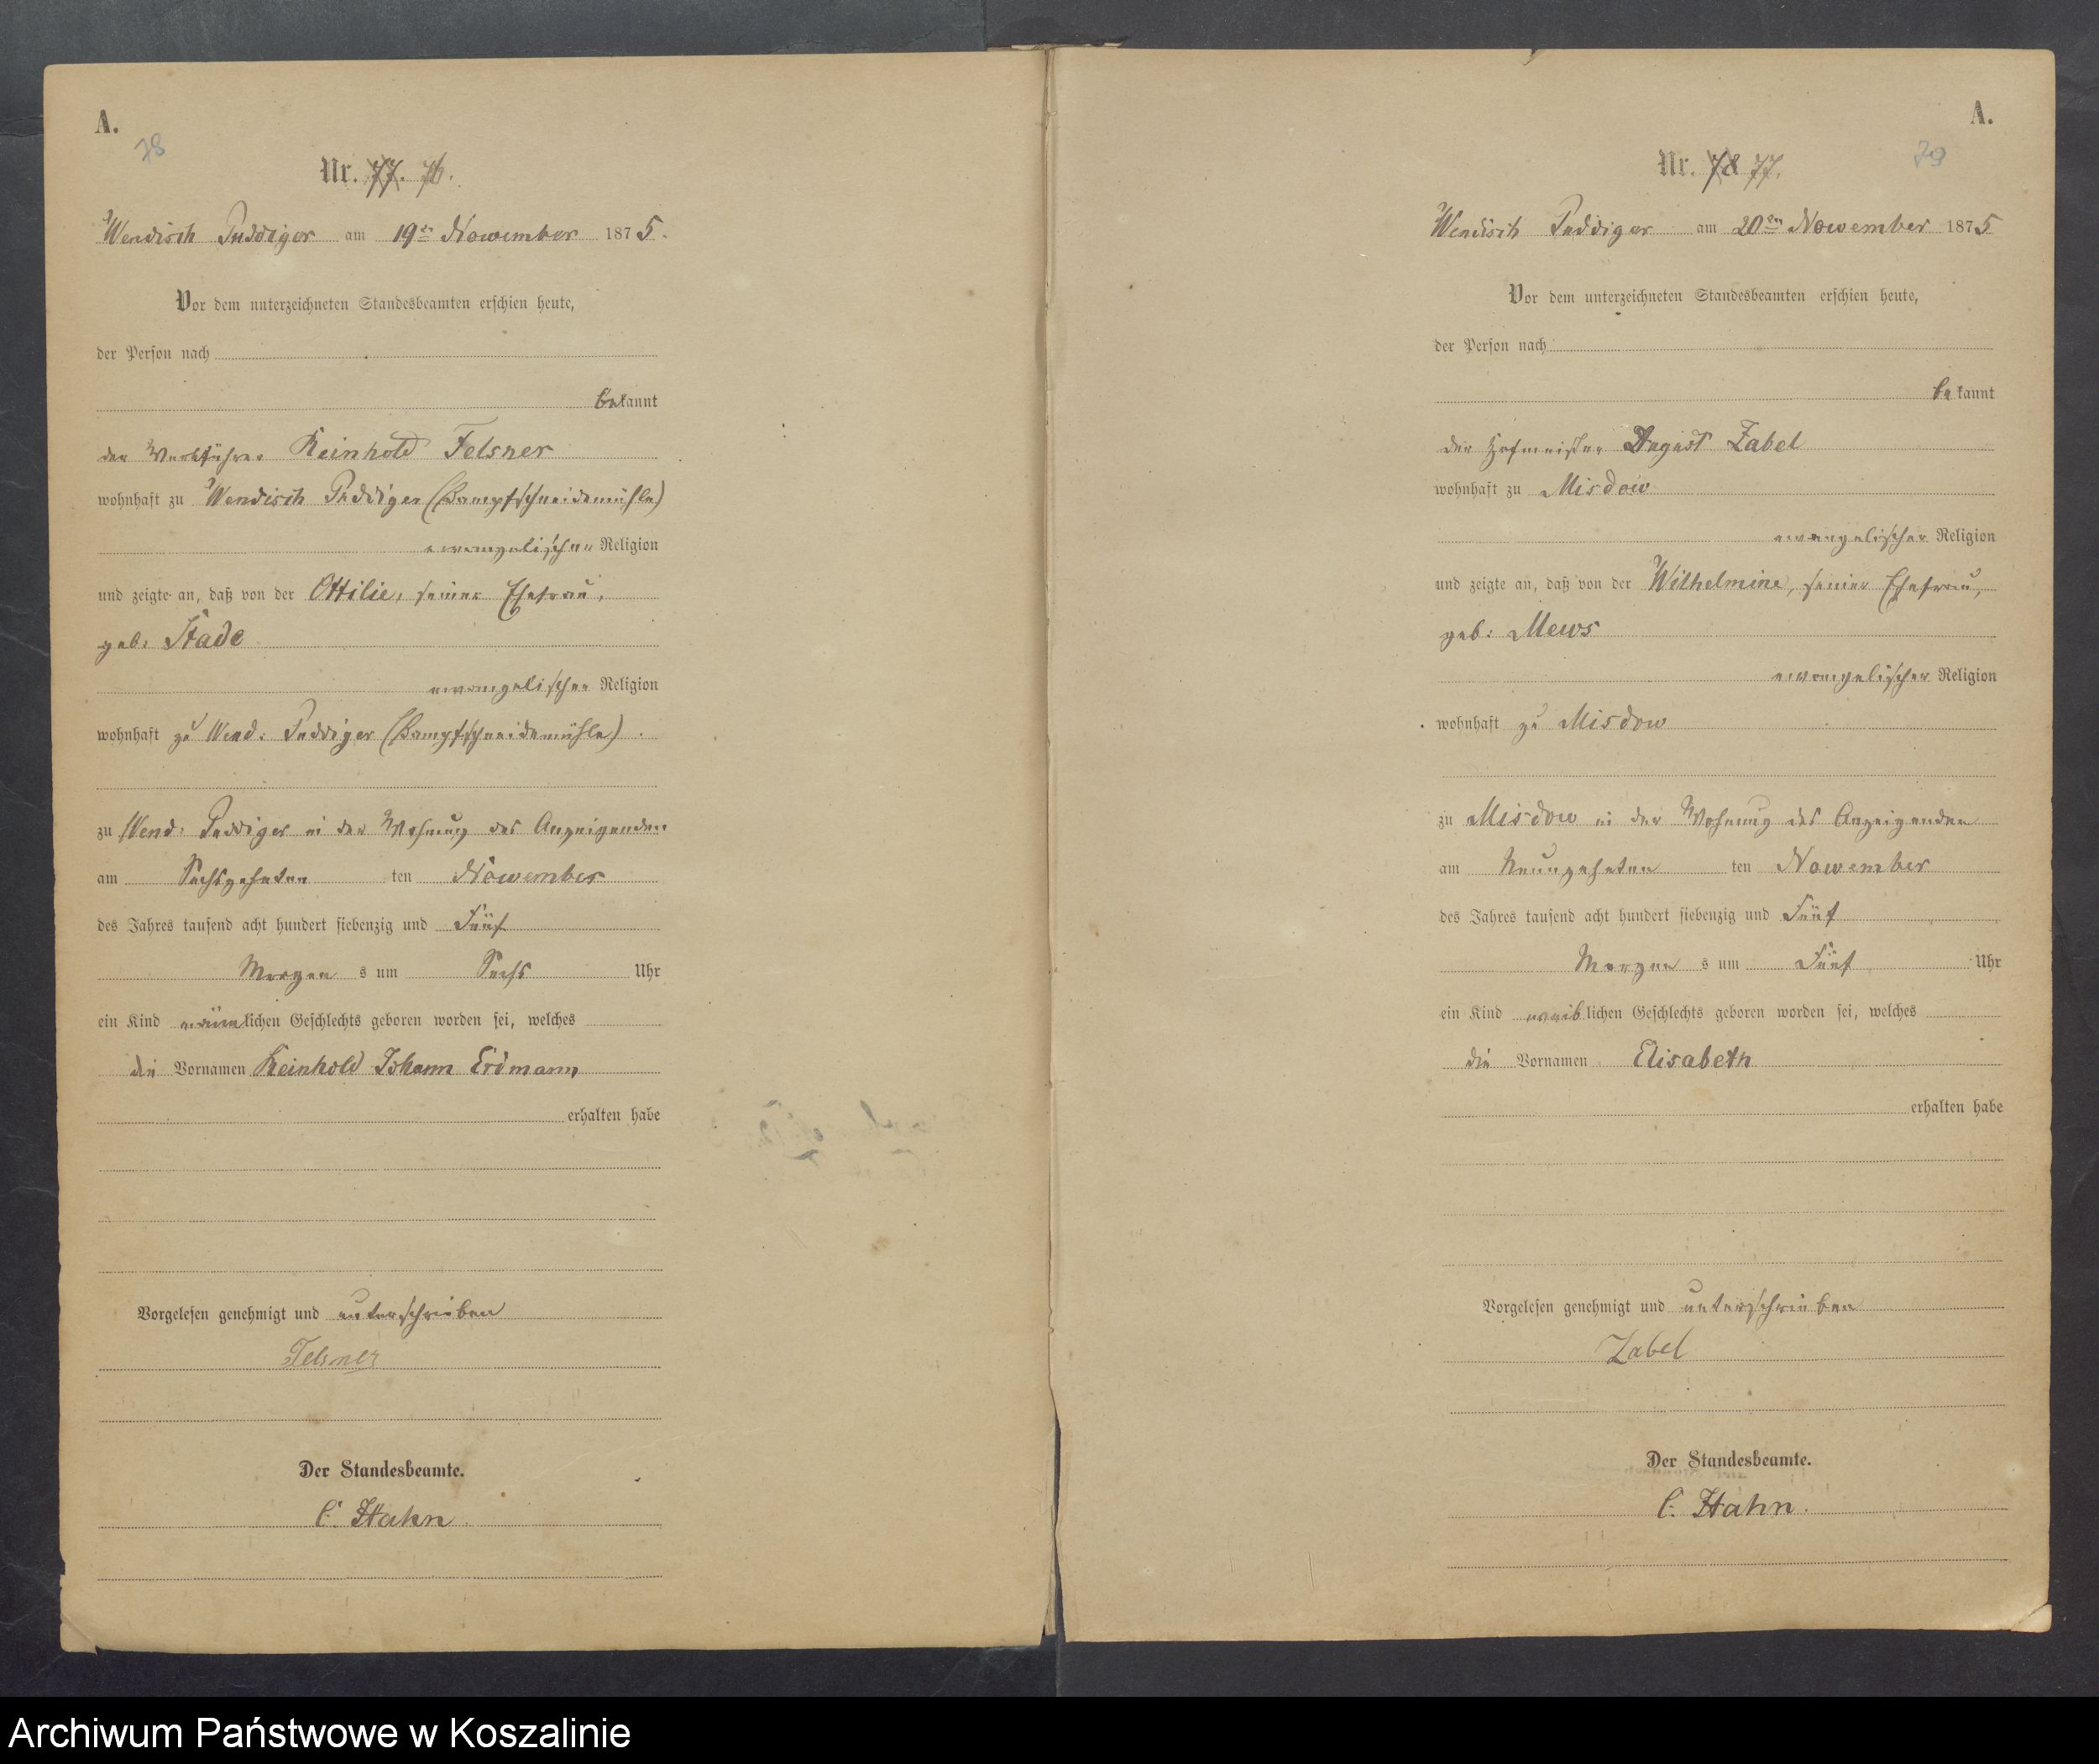 A.
78
Nr. 77. 76.
Wendisch Puddiger am 19ten November 1875.
Vor dem unterzeichneten Standesbeamten erschien heute,
der Person nach
bekannt
der Werkführer Reinhold Felsner
wohnhaft zu Wendisch Puddiger (Dampfschneidemühle)
evangelischer Religion
und zeigte an, daß von der Ottilie, seiner Ehefrau,
geb: Stade
evangelischer Religion
wohnhaft zu Wend: Puddiger (Dampfschneidemühle)
zu Wend: Puddiger in der Wohnung des Anzeigenden
am Sechszehnten ten November
des Jahres tausend acht hundert siebenzig und Fünf
Morgen s um Sechs Uhr
ein Kind männlichen Geschlechts geboren worden sei, welches
die Vornamen Reinhold Johann Erdmann
erhalten habe
Vorgelesen genehmigt und unterschrieben
Felsner
Der Standesbeamte.
C. Hahn.
A.
79
Nr. 78 77.
Wendisch Puddiger am 20ten November 1875
Vor dem unterzeichneten Standesbeamten erschien heute,
der Person nach
bekannt
der Hofmeister August Zabel
wohnhaft zu Misdow
evangelischer Religion
und zeigte an, daß von der Wilhelmine, seiner Ehefrau,
geb: Mews
evangelischer Religion
wohnhaft zu Misdow
zu Misdow in der Wohnung des Anzeigenden
am Neunzehnten ten November
des Jahres tausend acht hundert siebenzig und Fünf
Morgen s um Fünf Uhr
ein Kind weiblichen Geschlechts geboren worden sei, welches
die Vornamen Elisabeth
erhalten habe
Vorgelesen genehmigt und unterschrieben
Zabel
Der Standesbeamte.
C. Hahn.
Archiwum Państwowe w Koszalinie